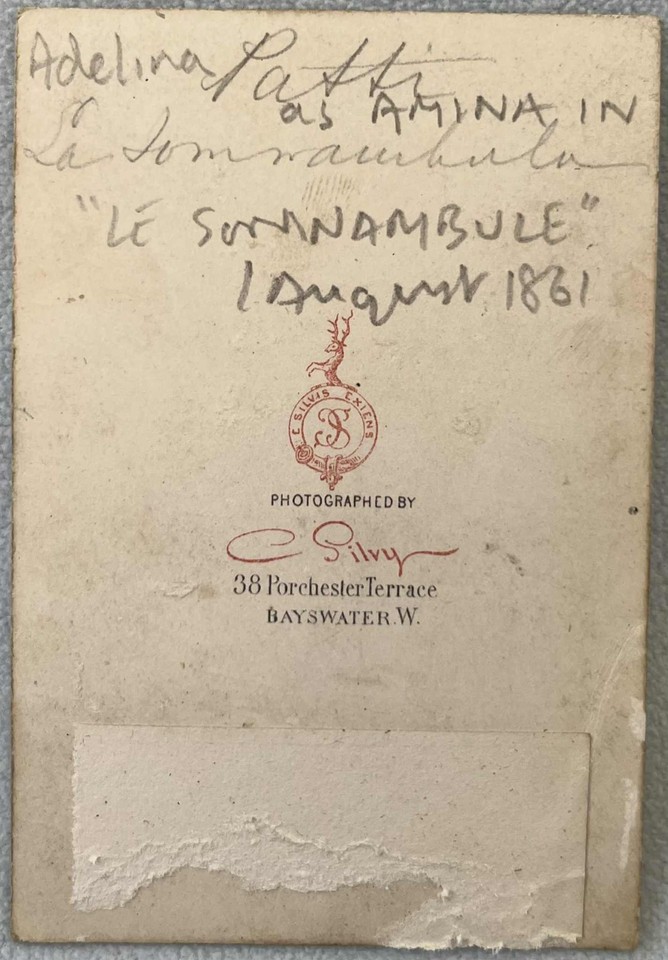 Adelina Patti
as AMINA IN
La Somnambula
"LE SOMNAMBULE"
1 August 1861
E SILVIS EXIENS
CS
PHOTOGRAPHED BY
C Silvy
38 Porchester Terrace
BAYSWATER. W.